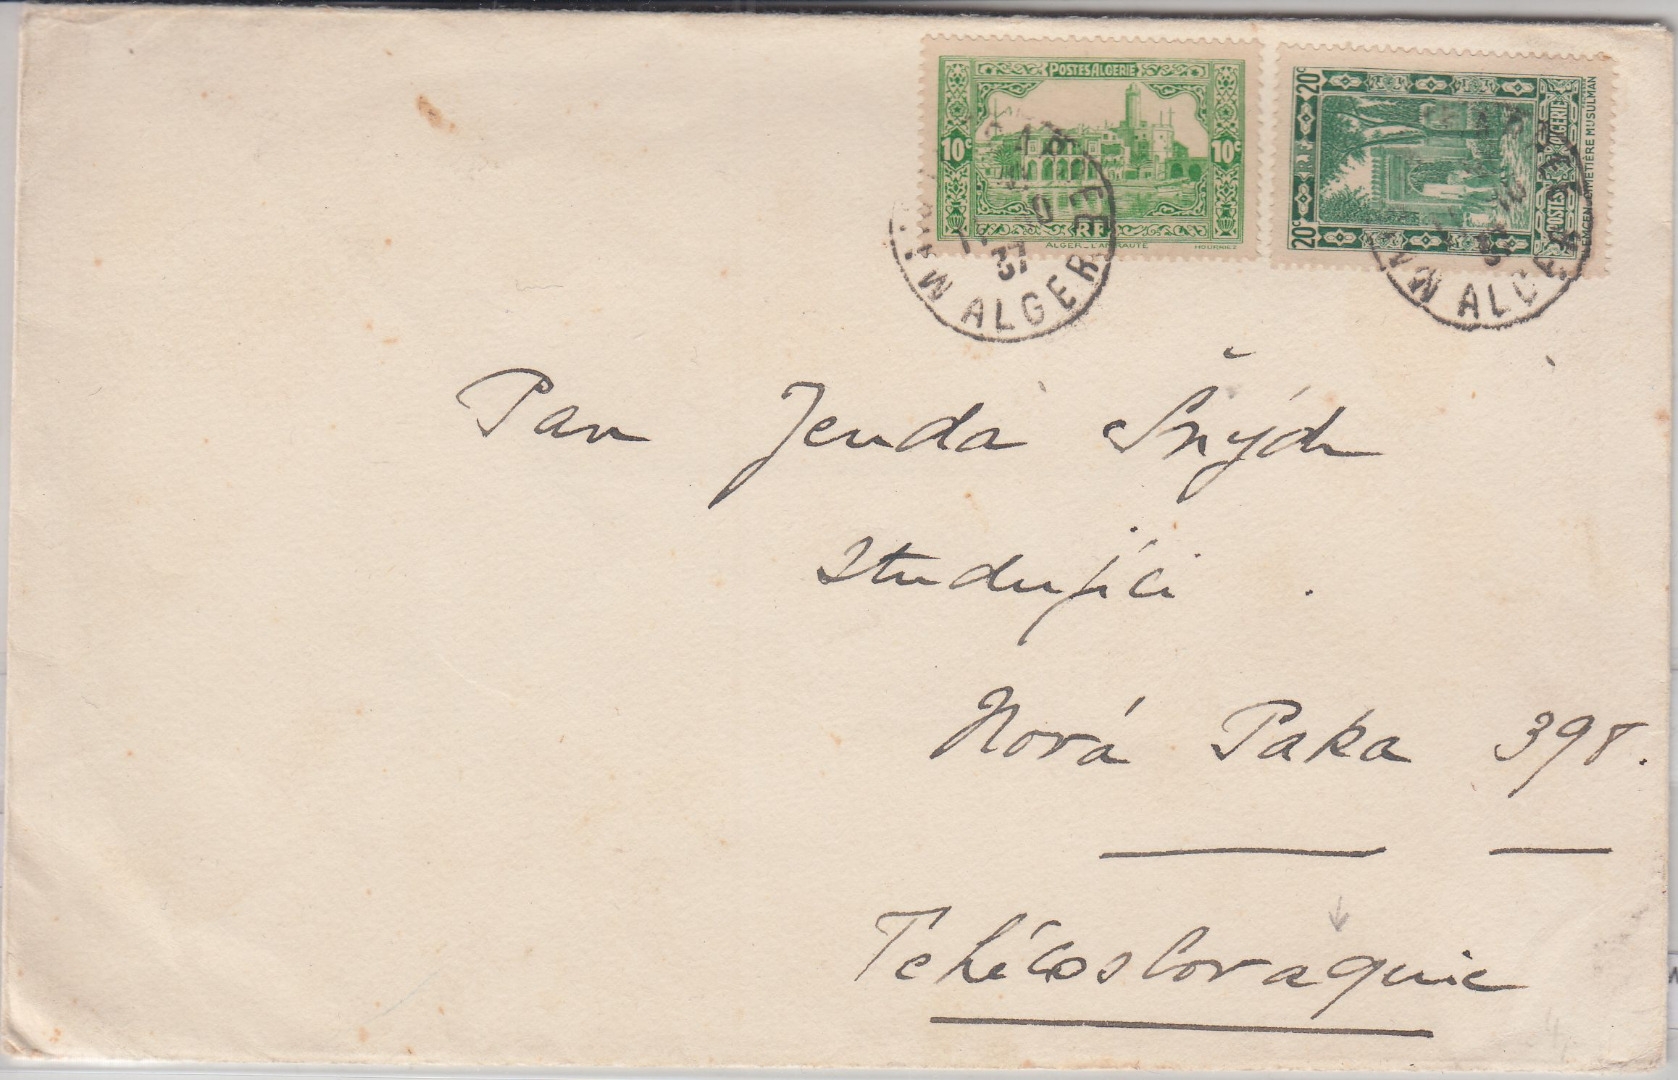 POSTES ALGERIE
10c 10c
RF
ALGER_L'AMIRAUTÉ HOURRIEZ
20c 20c
POSTES ALGERIE
TLEMCEN_CIMETIÈRE MUSULMAN
ALGER
37
ALGER
Pan Jenda Šnýdr
studující.
Nová Paka 398.
Tchécoslovaquie